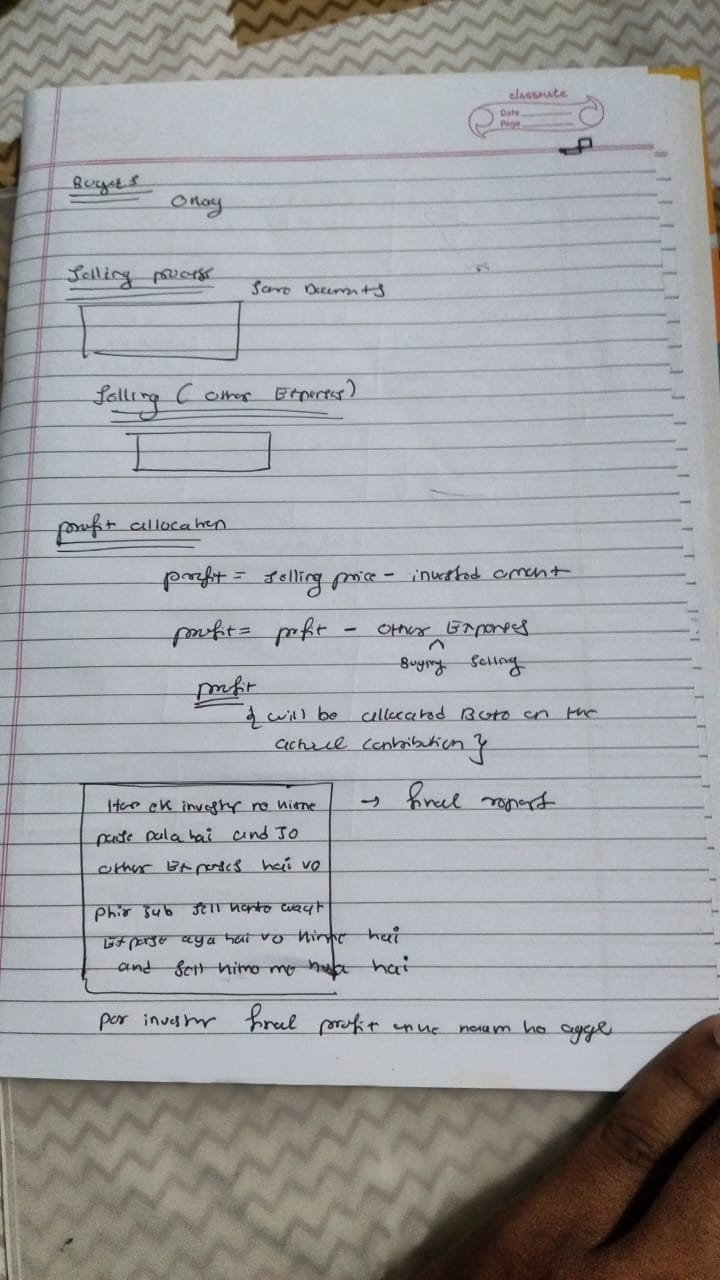 classmate
Date
Page
Buyers
Onay
Selling process
Saro Documents
Selling (Other Expenses)
profit allocation
profit = selling price - invested amount
profit = profit - other Expenses
Buying Selling
profit
{ will be allocated on the
actual contribution }
Har ek investor ne kitne → final report
paise dala hai and Jo
other Expenses hai vo
phir jub sell karte waqt
Expense aya hai vo kitne hai
and sell kitne me hua hai
per investor final profit unke naam ho